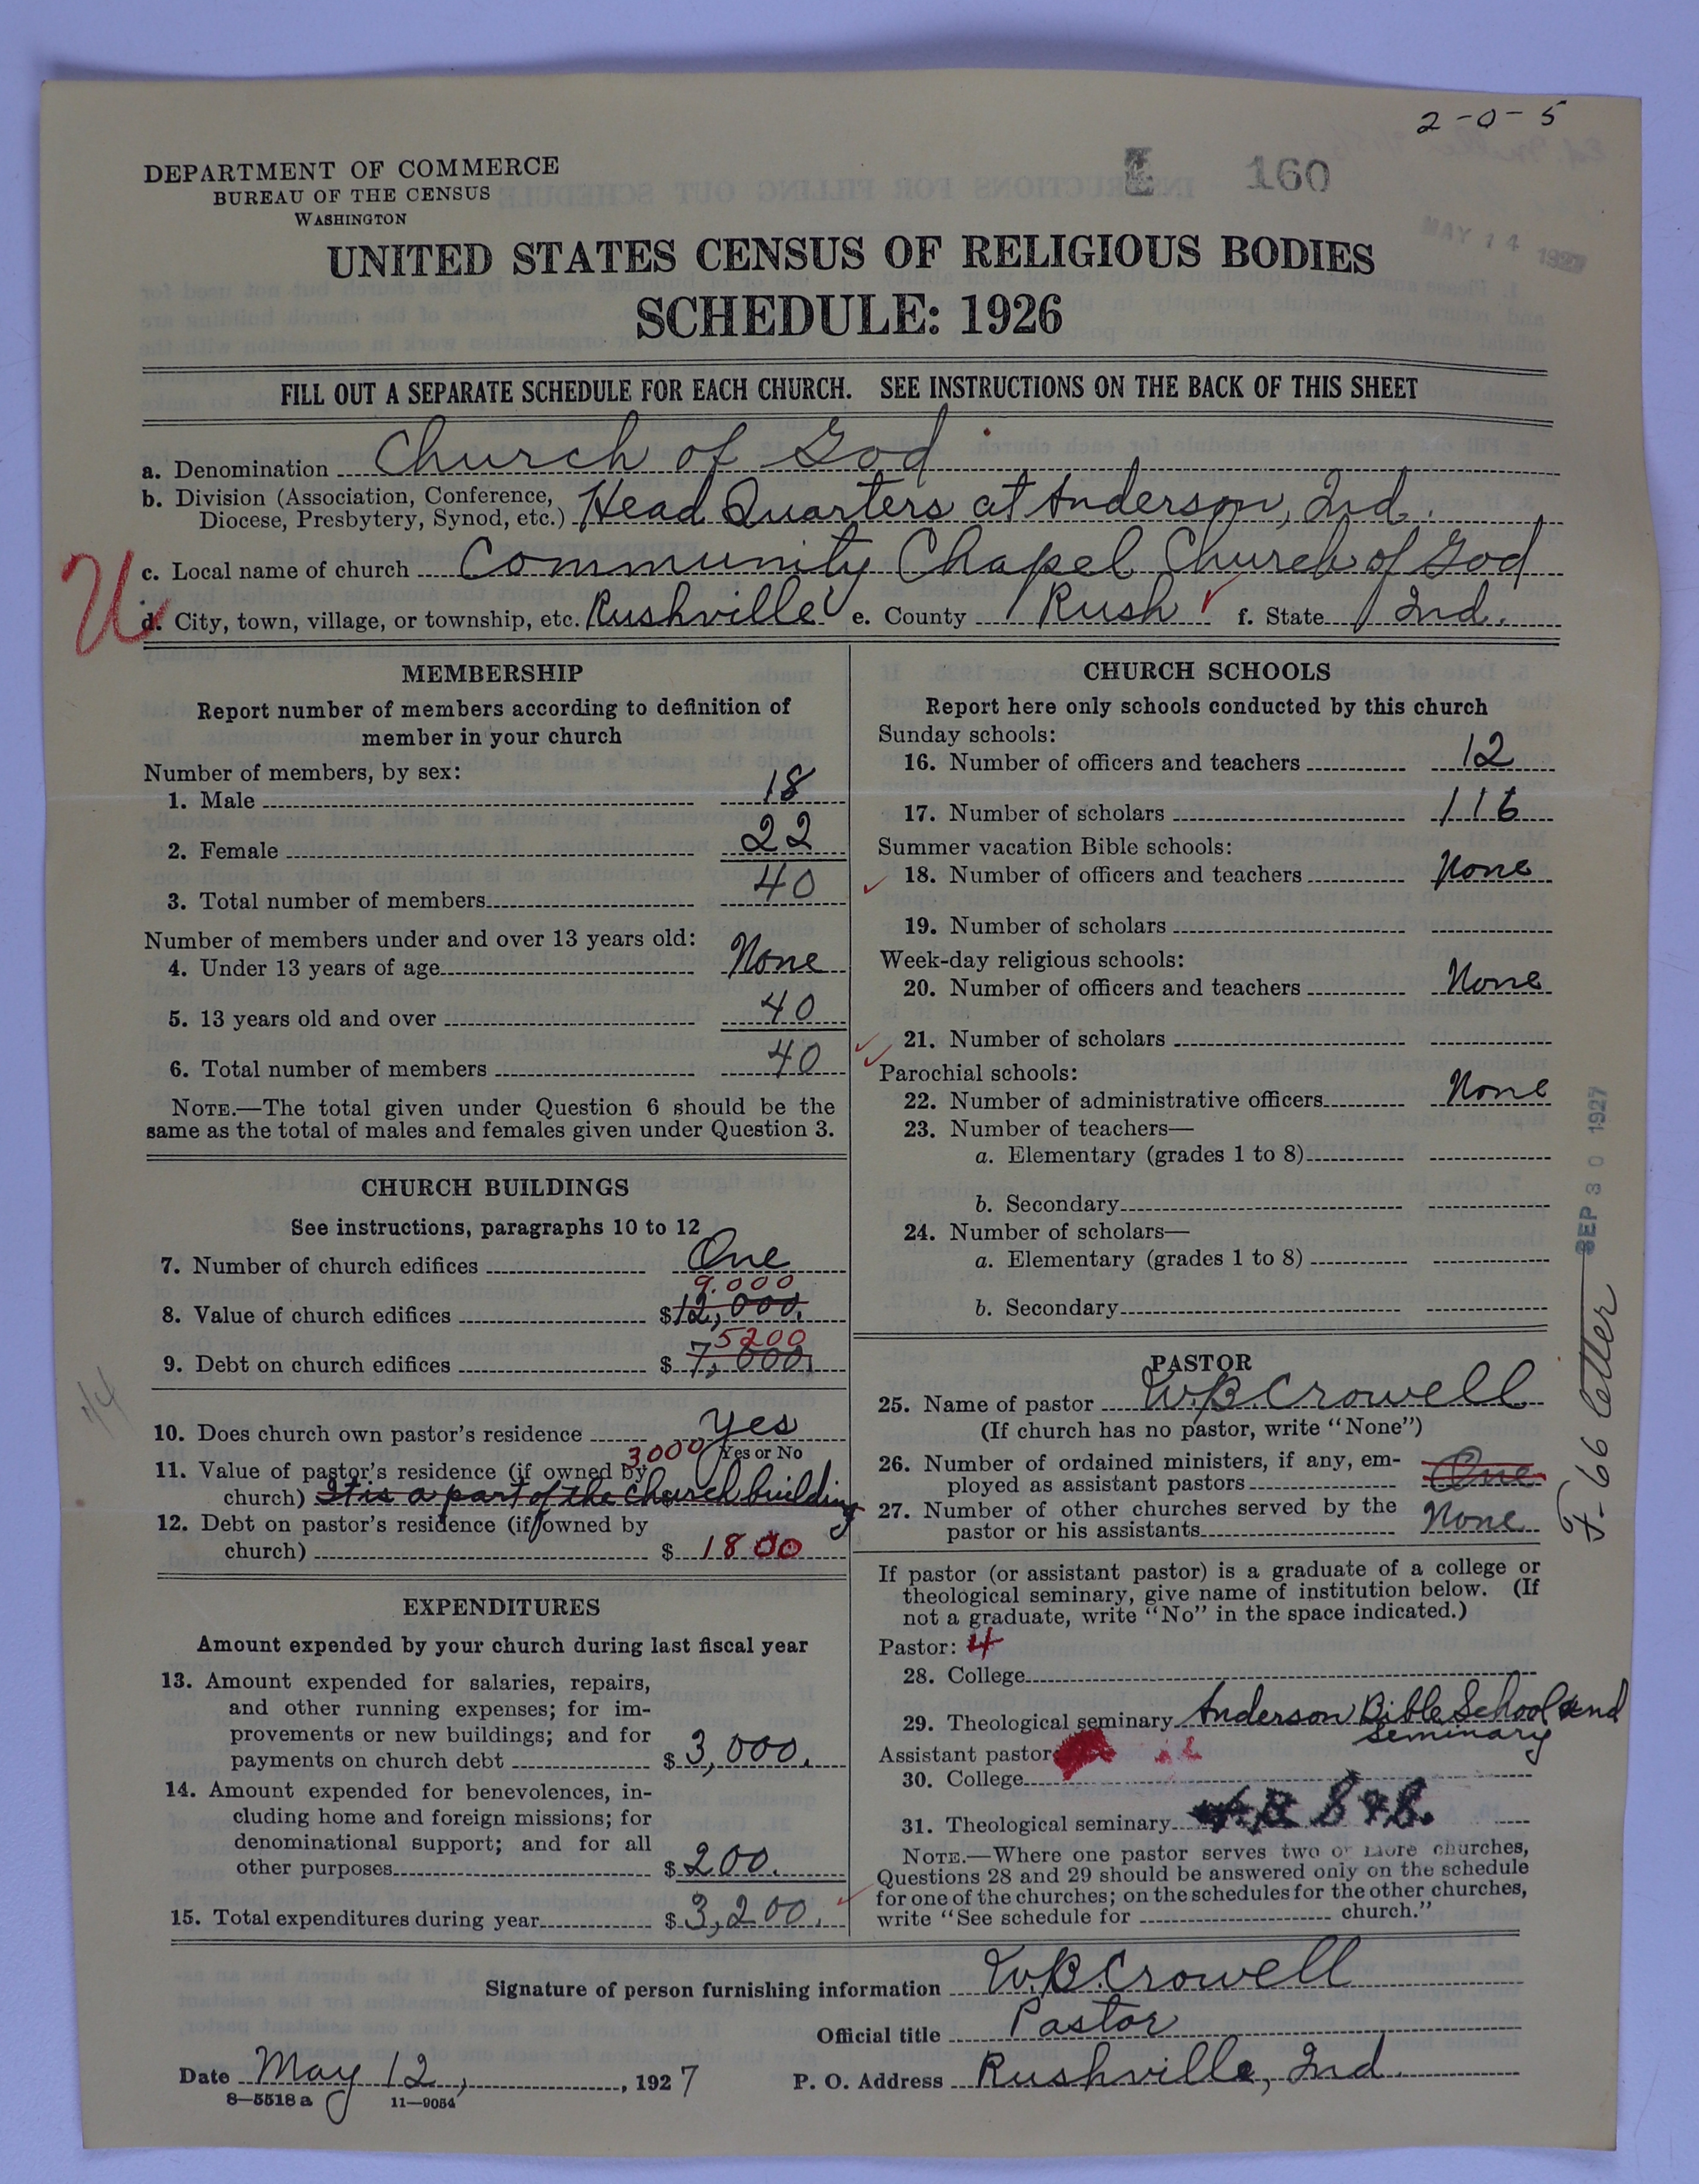 2-0-5
DEPARTMENT OF COMMERCE
BUREAU OF THE CENSUS
WASHINGTON
160
MAY 14 1927
UNITED STATES CENSUS OF RELIGIOUS BODIES
SCHEDULE: 1926
FILL OUT A SEPARATE SCHEDULE FOR EACH CHURCH. SEE INSTRUCTIONS ON THE BACK OF THIS SHEET
a. Denomination Church of God
b. Division (Association, Conference, Diocese, Presbytery, Synod, etc.) Head Quarters at Anderson, Ind.
U
c. Local name of church Community Chapel Church of God
d. City, town, village, or township, etc. Rushville e. County Rush f. State Ind.
MEMBERSHIP
Report number of members according to definition of
member in your church
Number of members, by sex:
1. Male 18
2. Female 22
3. Total number of members 40
Number of members under and over 13 years old:
4. Under 13 years of age None
5. 13 years old and over 40
6. Total number of members 40
NOTE.—The total given under Question 6 should be the
same as the total of males and females given under Question 3.
CHURCH BUILDINGS
See instructions, paragraphs 10 to 12
7. Number of church edifices One
9.000
8. Value of church edifices $12,000.
5200
9. Debt on church edifices $7,000.
10. Does church own pastor's residence Yes
Yes or No
3000
11. Value of pastor's residence (if owned by
church) It is a part of the Church building
12. Debt on pastor's residence (if owned by
church) $ 1800
EXPENDITURES
Amount expended by your church during last fiscal year
13. Amount expended for salaries, repairs,
and other running expenses; for im-
provements or new buildings; and for
payments on church debt $3,000.
14. Amount expended for benevolences, in-
cluding home and foreign missions; for
denominational support; and for all
other purposes $200.
15. Total expenditures during year $3,200.
CHURCH SCHOOLS
Report here only schools conducted by this church
Sunday schools:
16. Number of officers and teachers 12
17. Number of scholars 116
Summer vacation Bible schools:
18. Number of officers and teachers None
19. Number of scholars
Week-day religious schools:
20. Number of officers and teachers None
21. Number of scholars
Parochial schools:
22. Number of administrative officers None
23. Number of teachers—
a. Elementary (grades 1 to 8)
b. Secondary
24. Number of scholars—
a. Elementary (grades 1 to 8)
b. Secondary
PASTOR
25. Name of pastor W.B. Crowell
(If church has no pastor, write "None")
26. Number of ordained ministers, if any, em-
ployed as assistant pastors One
27. Number of other churches served by the
pastor or his assistants None
If pastor (or assistant pastor) is a graduate of a college or
theological seminary, give name of institution below. (If
not a graduate, write "No" in the space indicated.)
Pastor: 4
28. College
29. Theological seminary Anderson Bible School and
Seminary
Assistant pastor
30. College
31. Theological seminary
NOTE.—Where one pastor serves two or more churches,
Questions 28 and 29 should be answered only on the schedule
for one of the churches; on the schedules for the other churches,
write "See schedule for church."
SEP 30 1927
F-66 letter
Signature of person furnishing information W.B. Crowell
Official title Pastor
Date May 12, 1927 P. O. Address Rushville, Ind.
8—5518 a 11—9054